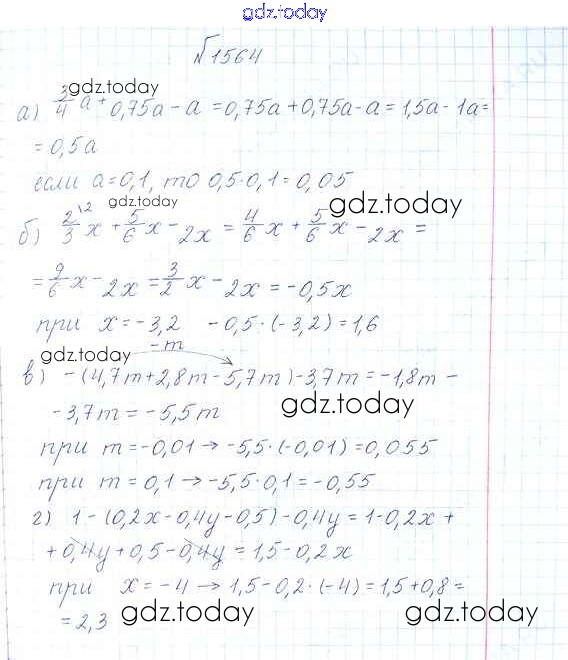 gdz.today
№1564
gdz.today
а) 3/4 a + 0,75a - a = 0,75a + 0,75a - a = 1,5a - 1a =
= 0,5a
если a = 0,1, то 0,5·0,1 = 0,05
gdz.today gdz.today
б) 2/3 \2 x + 5/6 x - 2x = 4/6 x + 5/6 x - 2x =
= 9/6 x - 2x = 3/2 x - 2x = -0,5x
при x = -3,2 -0,5·(-3,2) = 1,6
gdz.today -m
в) -(4,7m + 2,8m - 5,7m) - 3,7m = -1,8m -
- 3,7m = -5,5m
gdz.today
при m = -0,01 → -5,5·(-0,01) = 0,055
при m = 0,1 → -5,5·0,1 = -0,55
г) 1 - (0,2x - 0,4y - 0,5) - 0,4y = 1 - 0,2x +
+ 0,4y + 0,5 - 0,4y = 1,5 - 0,2x
при x = -4 → 1,5 - 0,2·(-4) = 1,5 + 0,8 =
= 2,3
gdz.today gdz.today